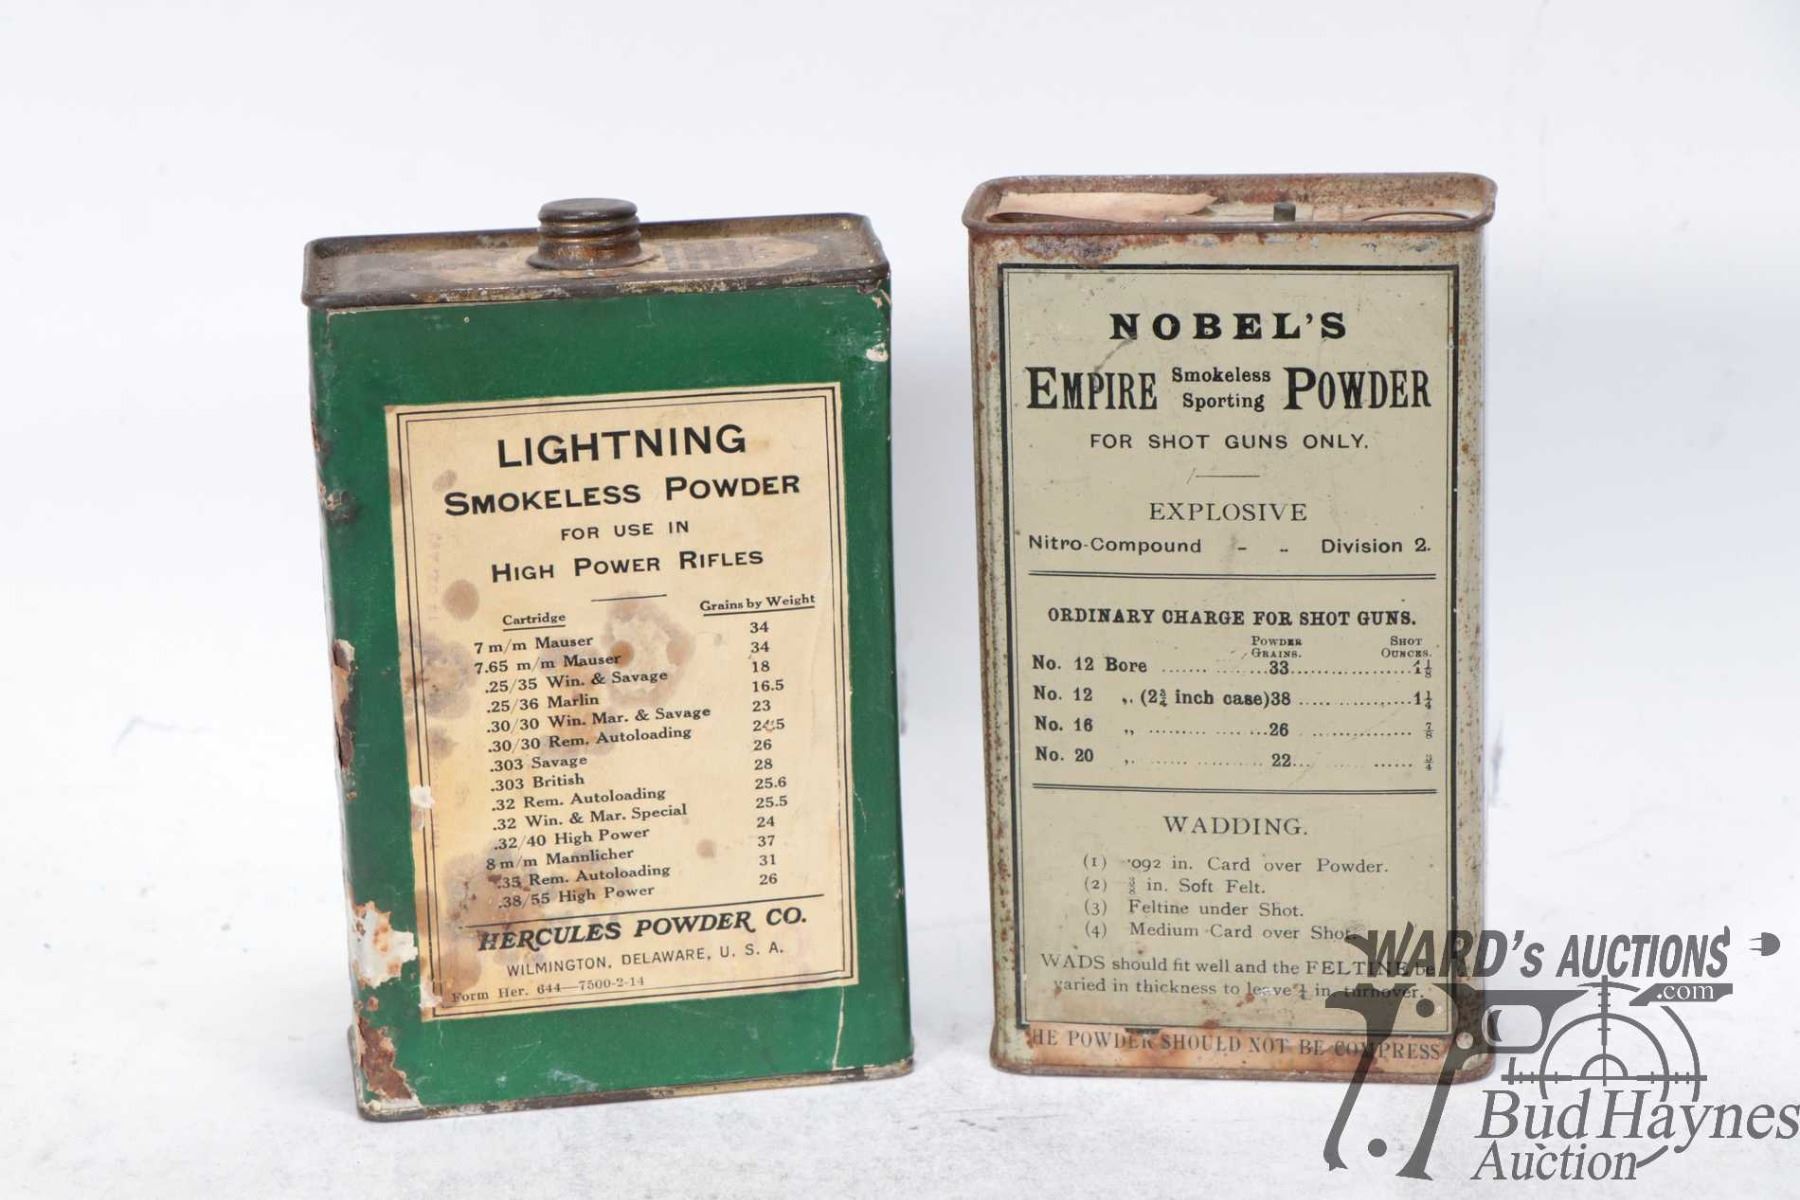 LIGHTNING
SMOKELESS POWDER
FOR USE IN
HIGH POWER RIFLES
Cartridge Grains by Weight
7 m/m Mauser 34
7.65 m/m Mauser 34
.25/35 Win. & Savage 18
.25/36 Marlin 16.5
.30/30 Win. Mar. & Savage 23
.30/30 Rem. Autoloading 24.5
.303 Savage 26
.303 British 28
.32 Rem. Autoloading 25.6
.32 Win. & Mar. Special 25.5
.32/40 High Power 24
8 m/m Mannlicher 37
.35 Rem. Autoloading 31
.38/55 High Power 26
HERCULES POWDER CO.
WILMINGTON, DELAWARE, U. S. A.
Form Her. 644—7500-2-14
NOBEL'S
EMPIRE Smokeless Sporting POWDER
FOR SHOT GUNS ONLY.
EXPLOSIVE
Nitro-Compound - - Division 2.
ORDINARY CHARGE FOR SHOT GUNS.
POWDER GRAINS. SHOT OUNCES.
No. 12 Bore 33 1⅛
No. 12 ,, (2¾ inch case) 38 1¼
No. 16 ,, 26 ⅞
No. 20 ,, 22 ¾
WADDING.
(1) ·092 in. Card over Powder.
(2) ⅜ in. Soft Felt.
(3) Feltine under Shot.
(4) Medium Card over Shot.
WADS should fit well and the FELTINE be
varied in thickness to leave ¼ in. turnover.
HE POWDER SHOULD NOT BE COMPRESS
WARD'S AUCTIONS
.com
Bud Haynes
Auction